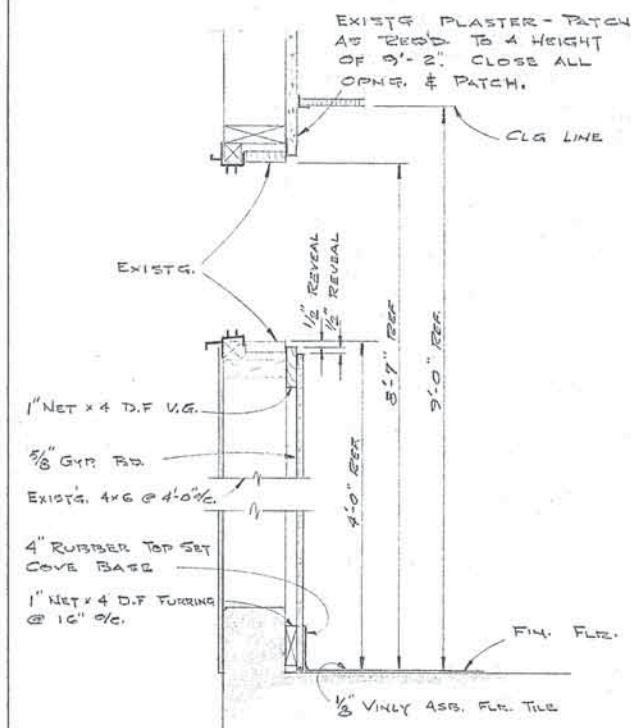 EXIST'G PLASTER - PATCH
AS REQ'D. TO A HEIGHT
OF 9'-2". CLOSE ALL
OPNG. & PATCH.
CLG LINE
EXIST'G.
1/2" REVEAL
1/2" REVEAL
8'-7" REF.
9'-0" REF.
4'-0" REF
1" NET x 4 D.F V.G.
5/8" GYP. BD.
EXIST'G. 4x6 @ 4'-0" o/c.
4" RUBBER TOP SET
COVE BASE
1" NET x 4 D.F FURRING
@ 16" o/c.
FIN. FLR.
1/8" VINLY ASB. FLR. TILE